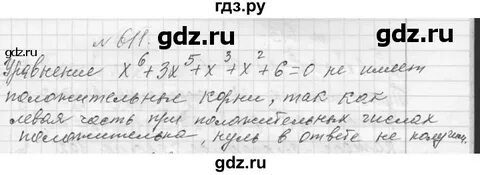 гдз.ру
№ 611.
gdz.ru gdz.ru
Уравнение x⁶+3x⁵+x³+x²+6=0 не имеет
положительные корни, так как
левая часть при положительных числах
положительна, нуль в ответе не получим.
gdz.ru gdz.ru
гдз.ру